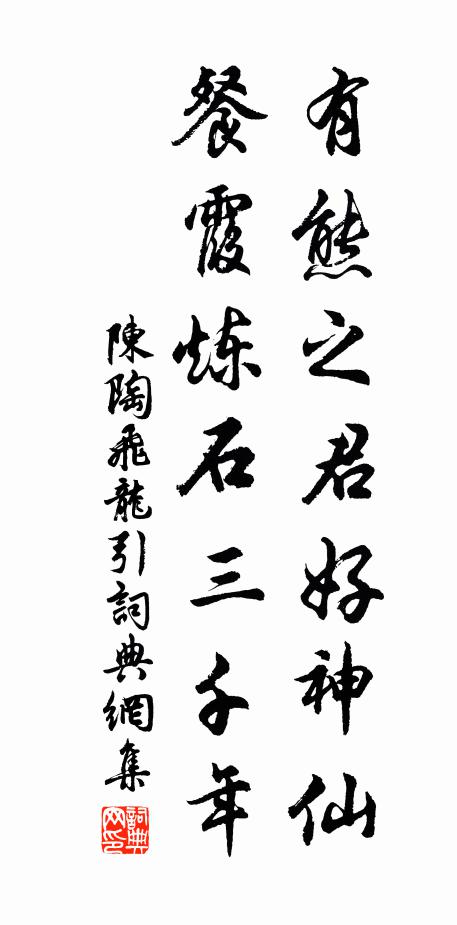 有熊之君好神仙
餐霞炼石三千年
陳陶飛龍引詞典網集
詞典网印